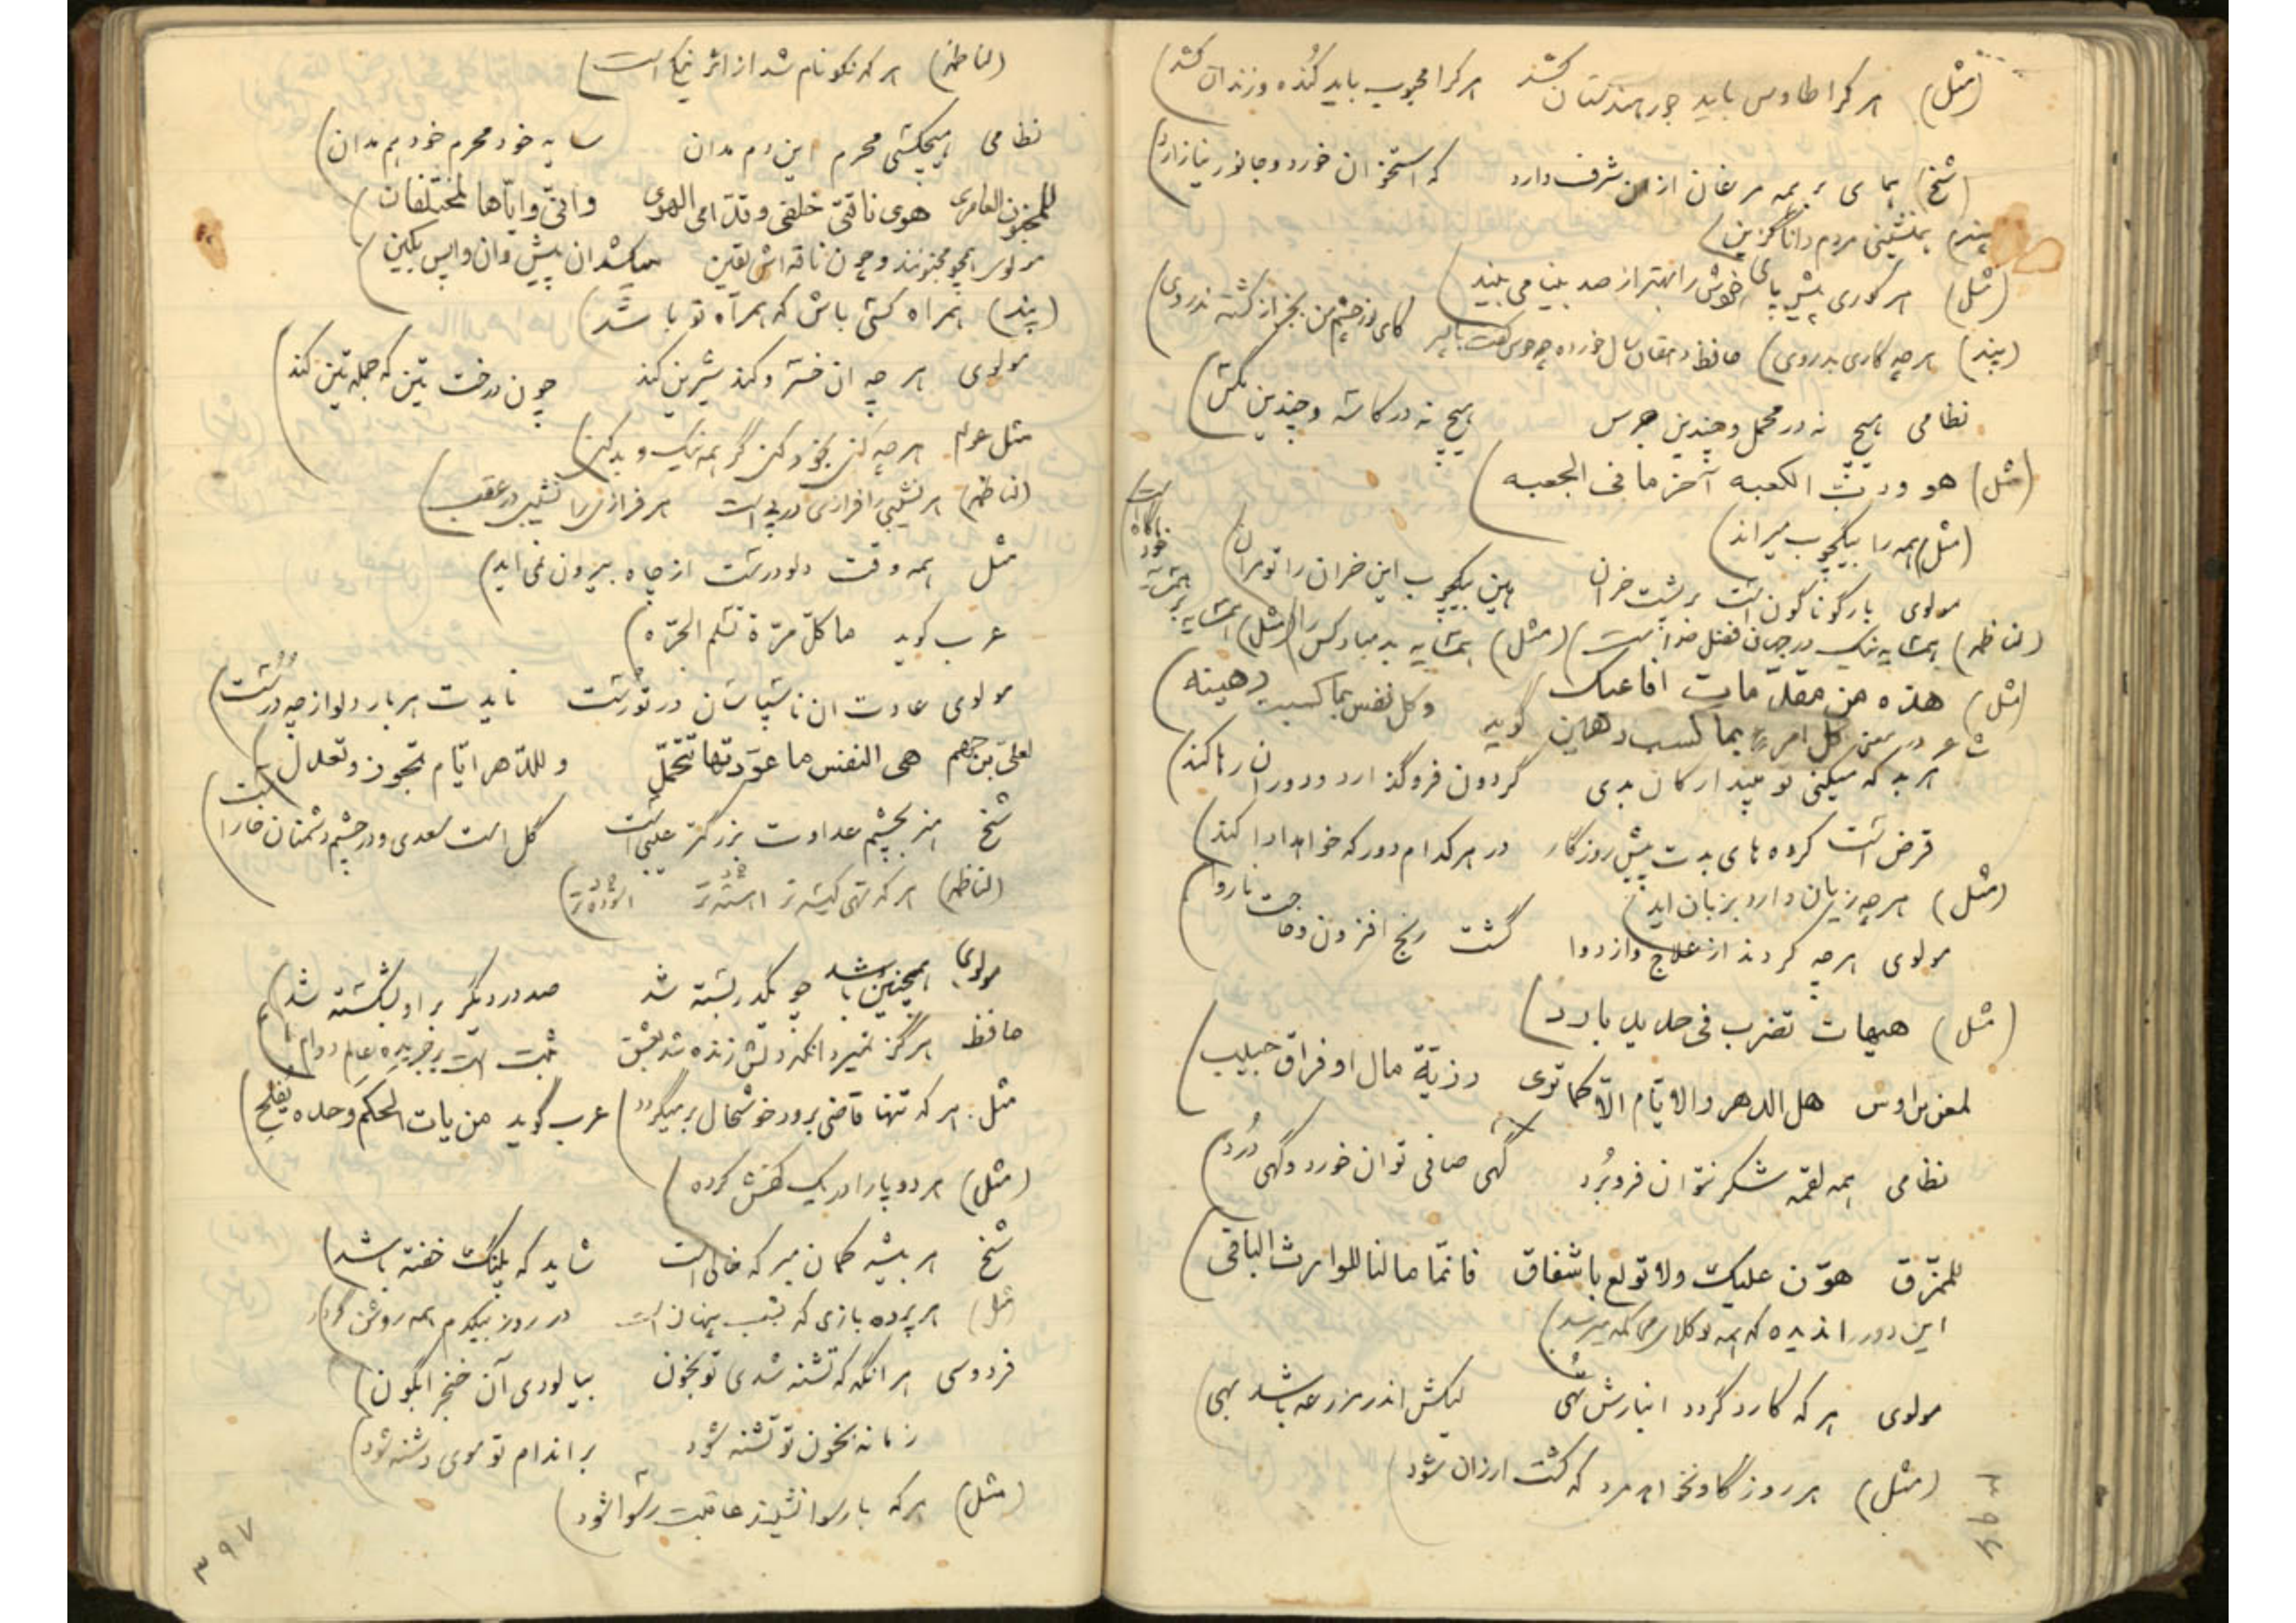 (مثل) هر کرا طاوس باید جور هندستان کشد هر کرا محبوب باید کُنده و زندان کشد)
(شخ) همای بر همه مرغان ازان شرف دارد که استخوان خورد و جانور نیازارد)
پند) همنشینی مردم دانا گزین)
(مثل) هر کوری پیش پای خوش را بهتر از صد بینا می بیند)
(پند) هر چه کاری بدروی) حافظ دهقان سال خورده چه خوش گفت با پسر کای نور چشم من بجز از کشته ندروی)
نظامی هیچ نه در محمل و چندین جرس هیچ نه در کاسه و چندین مگس)
(مثل) هو وربّ الکعبه آخر ما فی الجعبه)
(مثل) همه را بیکچوب میراند)
مولوی بار گوناگون است بر پشت خران هین بیکچوب این خران را تو مران)
(لناظمه) همسایه نیک در جهان فضل خداست) (مثل) همسایه بد مباد کس را) (مثل) همسایه
(مثل) هذه من مقدّمات افاعیک وکل نفس بما کسبت رهینه)
شاعر در معنی کل امرء بما کسب رهین گوید
هر بد که میکنی تو مپندار کان بدی گردون فرو گذارد و دوران رها کند)
قرض است کرده های بدت پیش روزگار در هر کدام دور که خواهد ادا کند)
(مثل) هر چه زیان دارد بزبان اید)
مولوی هر چه کردند از علاج و از دوا گشت رنج افزون و حاجت ناروا)
(مثل) هیهات تضرب فی حدید بارد)
لمعن بن اوس هل الدهر والایّام الّا کما تری رزیّة مال او فراق حبیب)
نظامی همه لقمه شکر نتوان فرو بُرد گهی صافی توان خورد و گهی دُرد)
للممزّق هوّن علیک ولا تولع باشفاق فانّما مالنا للوارث الباقی)
مولوی هر که کارد گردد انبارش تهی لیکش اندر مزرعه باشد بهی)
(مثل) هر روز گاو نخواهد مرد که گشت ارزان شود)
۳۹۶
(لناظمه) هر که نکو نام شد از اثر نیکی است)
نظامی هیچکسی محرم این دم مدان سایه خود محرم خود هم مدان)
للمجنون العامری هوی ناقتی خلفی وقدّامی الهوی وانّی وایّاها لمختلفان)
مولوی همچو مجنونند و چون ناقه اش یقین میکشد ان پیش وان واپس بکین)
(پند) همراه کسی باش که همراه تو باشد)
مولوی هر چه ان خسرو کند شیرین کند چون درخت تین که جمله تین کند)
مثل عوام هر چه کنی بخود کنی گر همه نیک و بد کنی)
(لناظمه) هر نشیبی را فرازی در پی است هر فرازی را نشیبی در عقب)
مثل همه وقت دلو درست از چاه بیرون نمی اید)
عرب گوید ما کلّ مرّة تسلم الجرّه)
مولوی عادت ان ناسپاسان در تو رست نایدت هر بار دلو از چه درست)
لعلیّ بن جهم هی النفس ما عوّدتها تتحمّل وللدّهر ایّام تجور وتعدل)
شخ هنر بچشم عداوت بزرگتر عیبی است گل است سعدی و در چشم دشمنان خار است)
(لناظمه) هر که تهی کیسه تر اسوده تر)
مولوی همچنین باشد چو یکدر بسته شد صد در دیگر بر او بشکسته شد)
حافظ هرگز نمیرد انکه دلش زنده شد بعشق ثبت است بر جریده عالم دوام ما)
مثل: هر که تنها قاضی برود خوشحال بر میگردد) عرب گوید من یات الحکم وحده یُفلح)
(مثل) هر دو پا را در یک کفش کرده)
شخ هر بیشه گمان مبر که خالی است شاید که پلنگ خفته باشد)
مثل) هر پرده بازی که بشب پنهان است در روز بیکدم همه روشن گردد)
فردوسی هر انگه که تشنه شدی تو بخون بیالودی آن خنجر ابگون)
زمانه بخون تو تشنه شود بر اندام تو موی دشنه شود)
(مثل) هر که با رسوا نشیند عاقبت رسوا شود)
۳۹۷